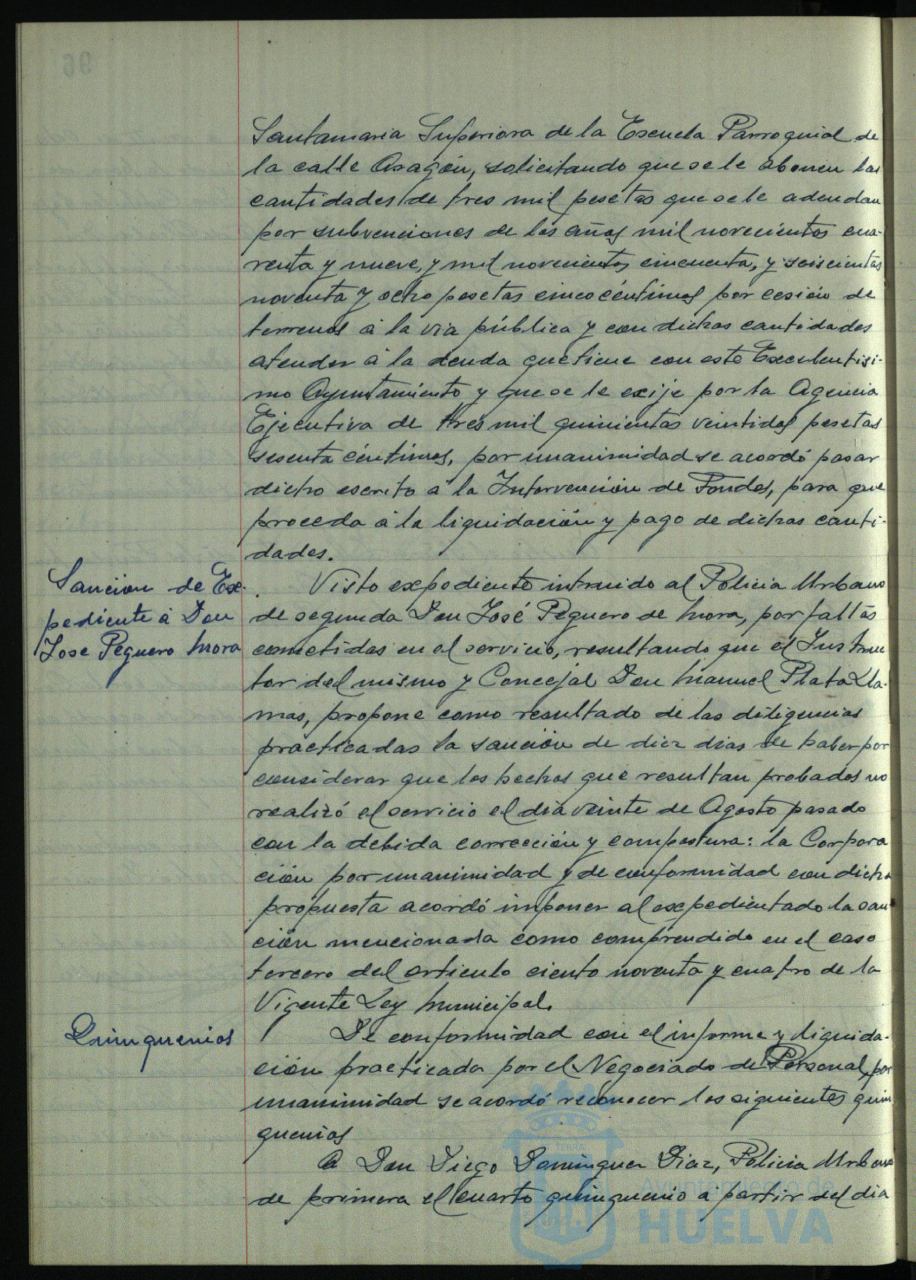 96
Santamaria Superiora de la Escuela Parroquial de
la calle Aragón, solicitando que se le abonen las
cantidades de tres mil pesetas que se le adeudan
por subvenciones de los años mil novecientos cua-
renta y nueve, y mil novecientos cincuenta, y seiscientas
noventa y ocho pesetas cinco céntimos por cesión de
terrenos á la via pública y con dichas cantidades
atender á la deuda que tiene con este Excelentisi-
mo Ayuntamiento y que se le exije por la Agencia
Ejecutiva de tres mil quinientas veintidos pesetas
sesenta céntimos, por unanimidad se acordó pasar
dicho escrito á la Intervención de Fondos, para que
proceda á la liquidación y pago de dichas canti-
dades.
Sancion de Ex-
pediente á Don
Jose Peguero Mora
Visto expediente intruido al Policia Urbano
de segunda Don José Peguero de Mora, por faltas
cometidas en el servicio, resultando que el Instruc
tor del mismo y Concejal Don Manuel Plata Lla-
mas, propone como resultado de las diligencias
practicadas la sanción de diez dias de haber por
considerar que los hechos que resultan probados no
realizó el servicio el dia veinte de Agosto pasado
con la debida corrección y compostura: la Corpora
ción por unanimidad y de conformidad con dicha
propuesta acordó imponer al expedientado la san
ción mencionada como comprendido en el caso
tercero del articulo ciento noventa y cuatro de la
Vigente Ley Municipal.
Quinquenios
De conformidad con el informe y liquida-
ción practicada por el Negociado de Personal, por
unanimidad se acordó reconocer los siguientes quin
quenios
A Don Diego Dominguez Diaz, Policia Urbano
de primera el cuarto quinquenio a partir del dia
Ayuntamiento de
HUELVA